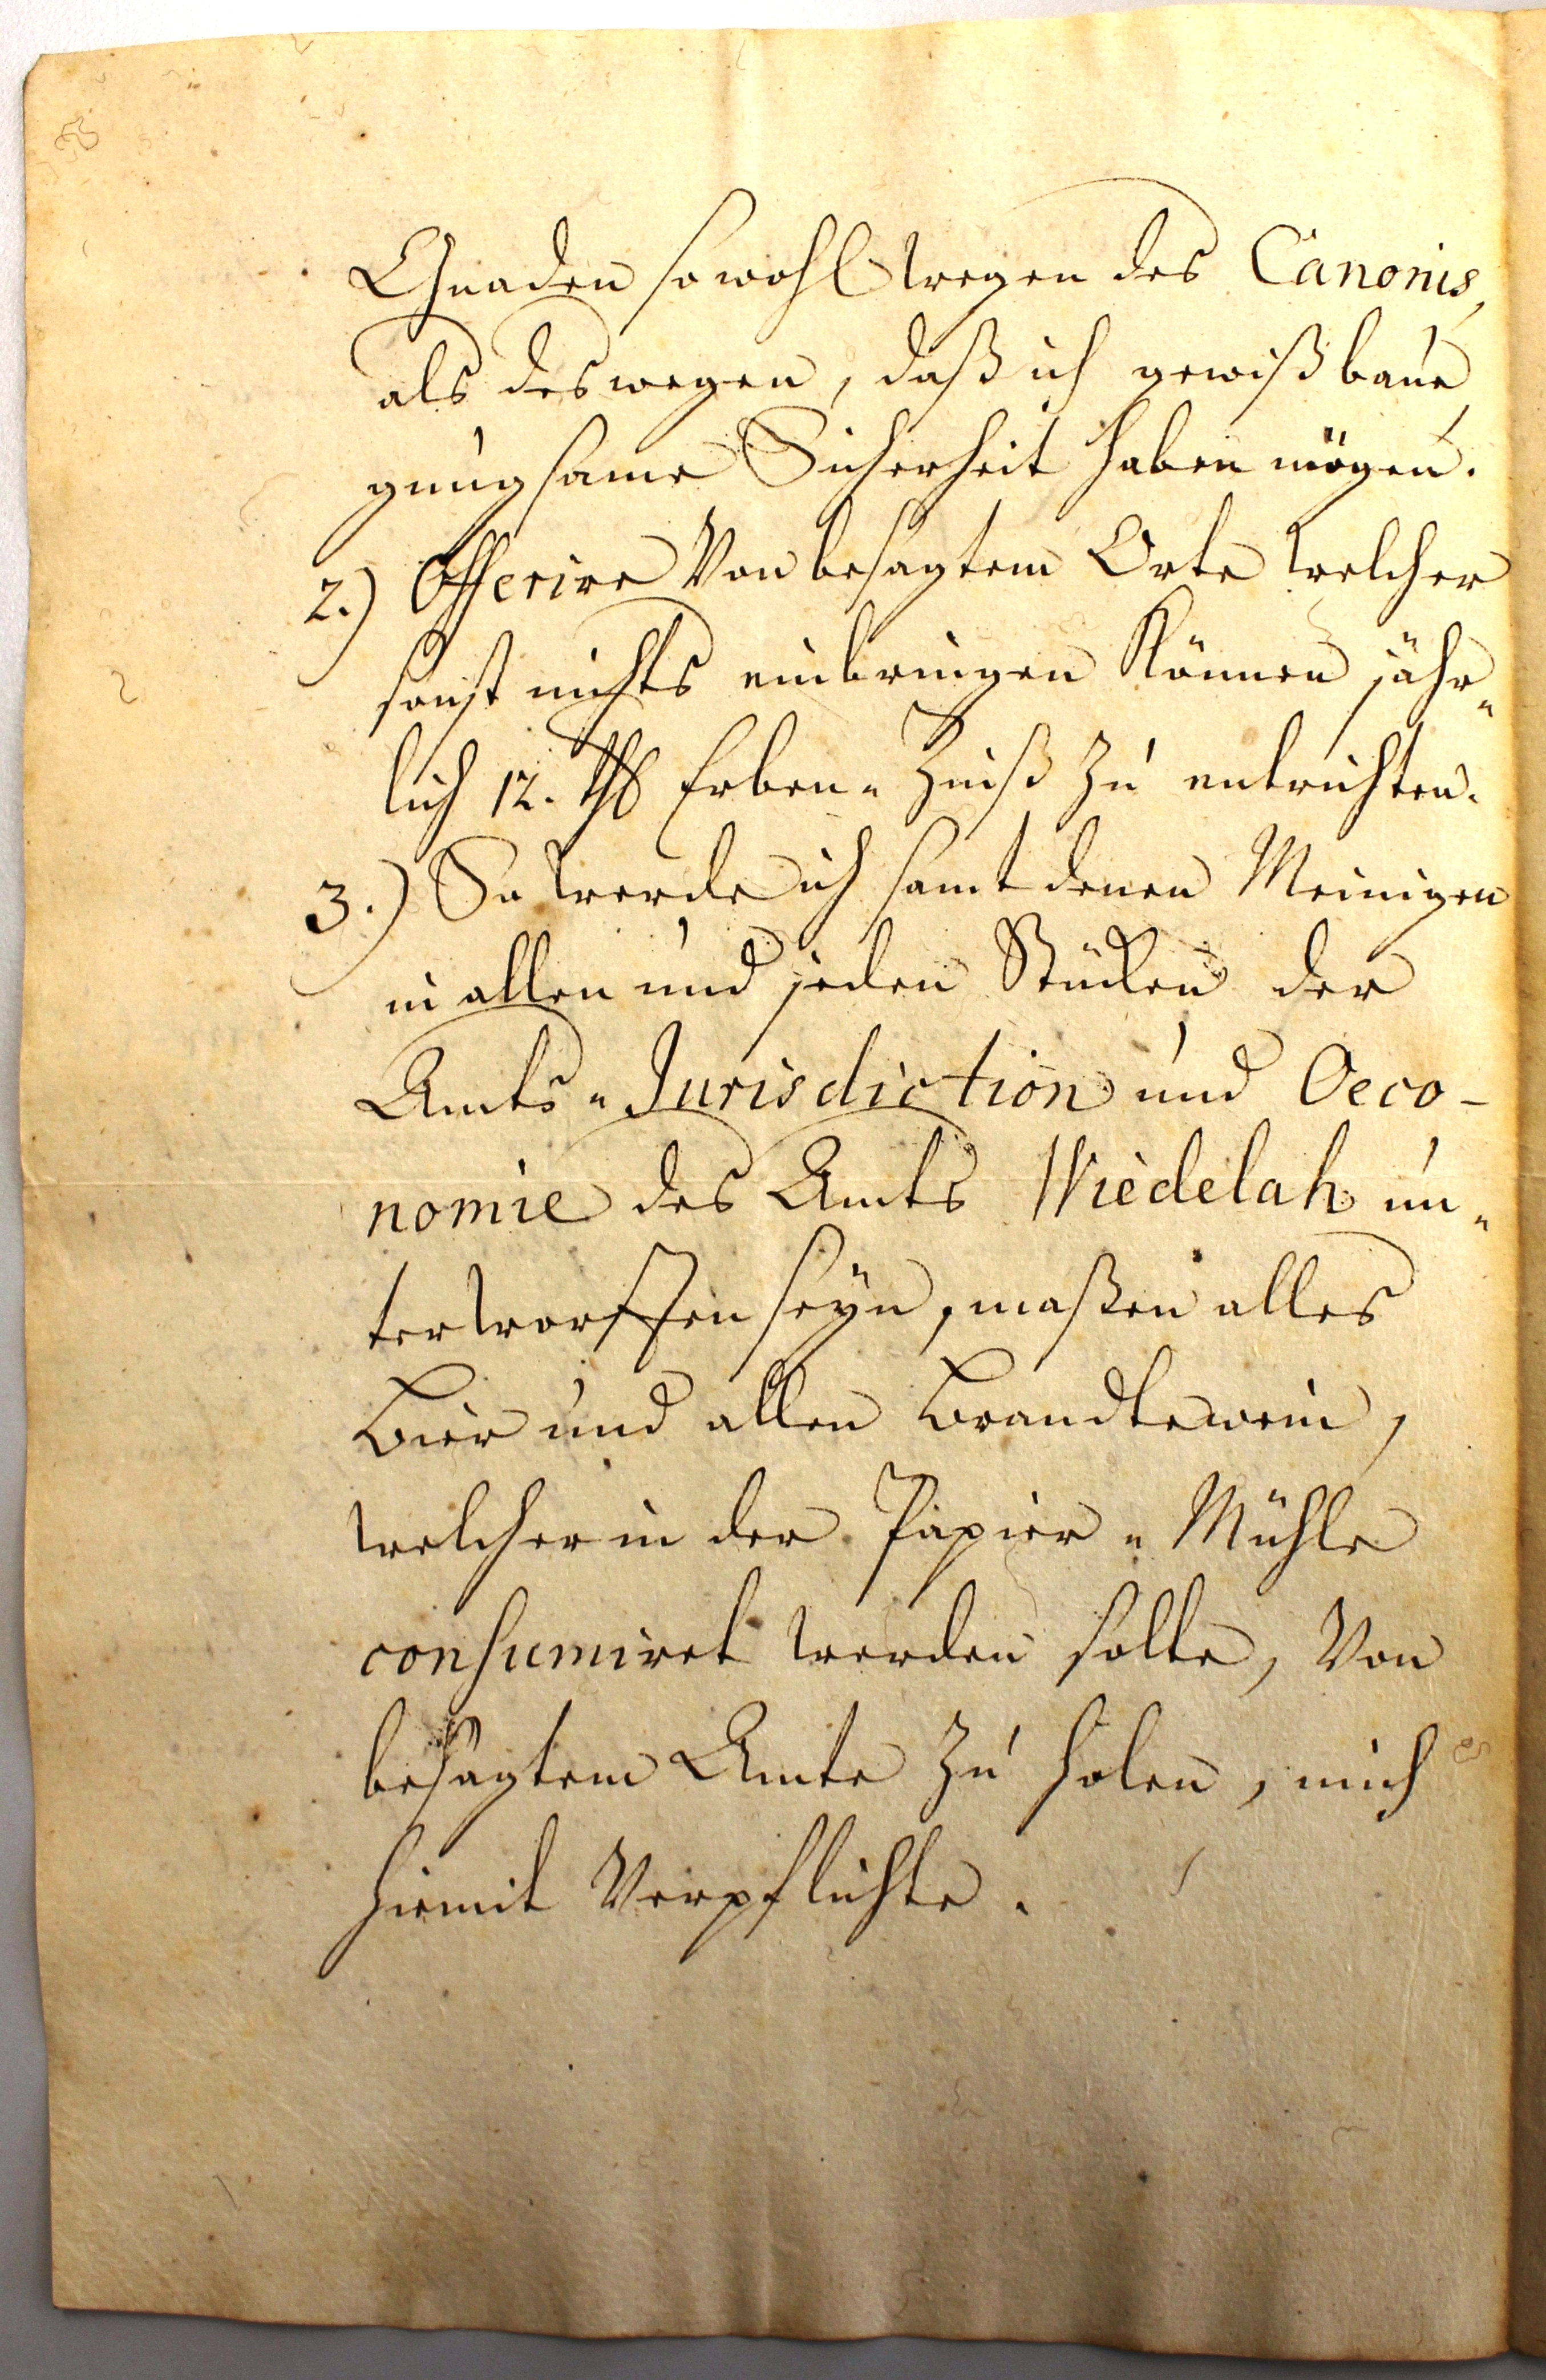 Gnaden sowohl wegen des Canonis,
als deswegen, daß ich gewiß baue
gnugsame Sicherheit haben mögen.
2.) Offerire von besagtem Orte welcher
sonst nichts einbringen können jähr„
lich 12. thl Erben„ Zinß zu entrichten.
3.) So werde ich samt denen Meinigen
in allen und jeden Stücken der
Amts„ Jurisdiction und Oeco-
nomie des Amts Wiedelah un„
terworffen seyn, maßen alles
Bier und allen Brandtewein,
welcher in der Papier„ Mühle
consumiret werden solte, von
besagtem Amte zu holen, mich
hiemit verpflichte.